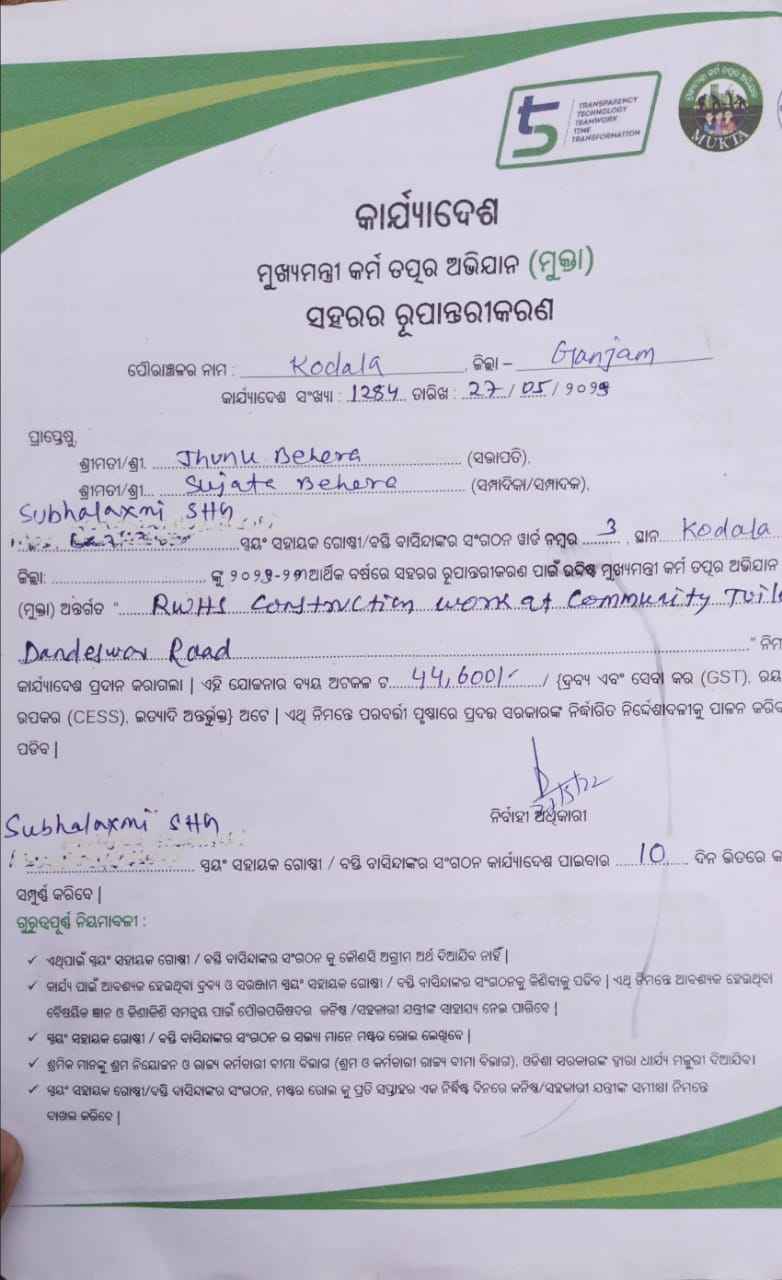 TRANSPARENCY
TECHNOLOGY
TEAMWORK
TIME
TRANSFORMATION
MUKTA
କାର୍ଯ୍ୟାଦେଶ
ମୁଖ୍ୟମନ୍ତ୍ରୀ କର୍ମ ତତ୍ପର ଅଭିଯାନ (ମୁକ୍ତା)
ସହରର ରୂପାନ୍ତରୀକରଣ
ପୌରାଞ୍ଚଳର ନାମ : Kodala, ଜିଲ୍ଲା – Ganjam
କାର୍ଯ୍ୟାଦେଶ ସଂଖ୍ୟା : 1284 ତାରିଖ : 27 / 05 /
ପ୍ରାପ୍ତେଷୁ,
ଶ୍ରୀମତୀ/ଶ୍ରୀ. Jhunu Behera (ସଭାପତି),
ଶ୍ରୀମତୀ/ଶ୍ରୀ... Sujata Behera (ସମ୍ପାଦିକା/ସମ୍ପାଦକ),
Subhalaxmi SHG
ସ୍ୱୟଂ ସହାୟକ ଗୋଷ୍ଠୀ/ବସ୍ତି ବାସିନ୍ଦାଙ୍କର ସଂଗଠନ ୱାର୍ଡ ନମ୍ବର 3, ସ୍ଥାନ Kodala
ଜିଲ୍ଲା: ଙ୍କୁ ଆର୍ଥିକ ବର୍ଷରେ ସହରର ରୂପାନ୍ତରୀକରଣ ପାଇଁ ଉଦ୍ଦିଷ୍ଟ ମୁଖ୍ୟମନ୍ତ୍ରୀ କର୍ମ ତତ୍ପର ଅଭିଯାନ
(ମୁକ୍ତା) ଅନ୍ତର୍ଗତ " RWHS Construction work at Community
Dandeswar Road "
କାର୍ଯ୍ୟାଦେଶ ପ୍ରଦାନ କରାଗଲା | ଏହି ଯୋଜନାର ବ୍ୟୟ ଅଟକଳ ଟ 44,600/- / {ଦ୍ରବ୍ୟ ଏବଂ ସେବା କର (GST),
ଉପକର (CESS), ଇତ୍ୟାଦି ଅନ୍ତର୍ଭୁକ୍ତ} ଅଟେ | ଏଥି ନିମନ୍ତେ ପରବର୍ତ୍ତୀ ପୃଷ୍ଠାରେ ପ୍ରଦତ୍ତ ସରକାରଙ୍କ ନିର୍ଦ୍ଧାରିତ ନିର୍ଦ୍ଦେଶାବଳୀକୁ ପାଳନ
ପଡିବ |
ନିର୍ବାହୀ ଅଧିକାରୀ
Subhalaxmi SHG
ସ୍ୱୟଂ ସହାୟକ ଗୋଷ୍ଠୀ / ବସ୍ତି ବାସିନ୍ଦାଙ୍କର ସଂଗଠନ କାର୍ଯ୍ୟାଦେଶ ପାଇବାର 10 ଦିନ ଭିତରେ
ସମ୍ପୂର୍ଣ୍ଣ କରିବେ |
ଗୁରୁତ୍ୱପୂର୍ଣ୍ଣ ନିୟମାବଳୀ :
✓ ଏଥିପାଇଁ ସ୍ୱୟଂ ସହାୟକ ଗୋଷ୍ଠୀ / ବସ୍ତି ବାସିନ୍ଦାଙ୍କର ସଂଗଠନ କୁ କୌଣସି ଅଗ୍ରୀମ ଅର୍ଥ ଦିଆଯିବ ନାହିଁ |
✓ କାର୍ଯ୍ୟ ପାଇଁ ଆବଶ୍ୟକ ହେଉଥିବା ଦ୍ରବ୍ୟ ଓ ସରଞ୍ଜାମ ସ୍ୱୟଂ ସହାୟକ ଗୋଷ୍ଠୀ / ବସ୍ତି ବାସିନ୍ଦାଙ୍କର ସଂଗଠନକୁ କିଣିବାକୁ ପଡିବ | ଏଥି ନିମନ୍ତେ ଆବଶ୍ୟକ ହେଉଥିବା
ବୈଷୟିକ ଜ୍ଞାନ ଓ କିଣାକିଣି ସମନ୍ୱୟ ପାଇଁ ପୌରପରିଷଦର କନିଷ୍ଠ /ସହକାରୀ ଯନ୍ତ୍ରୀଙ୍କ ସାହାଯ୍ୟ ନେଇ ପାରିବେ |
✓ ସ୍ୱୟଂ ସହାୟକ ଗୋଷ୍ଠୀ / ବସ୍ତି ବାସିନ୍ଦାଙ୍କର ସଂଗଠନ ର ସଭ୍ୟା ମାନେ ମଷ୍ଟର ରୋଲ ଲେଖିବେ |
✓ ଶ୍ରମିକ ମାନଙ୍କୁ ଶ୍ରମ ନିୟୋଜନ ଓ ରାଜ୍ୟ କର୍ମଚାରୀ ବୀମା ବିଭାଗ (ଶ୍ରମ ଓ କର୍ମଚାରୀ ରାଜ୍ୟ ବୀମା ବିଭାଗ), ଓଡିଶା ସରକାରଙ୍କ ଦ୍ୱାରା ଧାର୍ଯ୍ୟ ମଜୁରୀ ଦିଆଯିବ।
✓ ସ୍ୱୟଂ ସହାୟକ ଗୋଷ୍ଠୀ/ବସ୍ତି ବାସିନ୍ଦାଙ୍କର ସଂଗଠନ, ମଷ୍ଟର ରୋଲ କୁ ପ୍ରତି ସପ୍ତାହର ଏକ ନିର୍ଦ୍ଦିଷ୍ଟ ଦିନରେ କନିଷ୍ଠ/ସହକାରୀ ଯନ୍ତ୍ରୀଙ୍କ ସମୀକ୍ଷା ନିମନ୍ତେ
ଦାଖଲ କରିବେ |